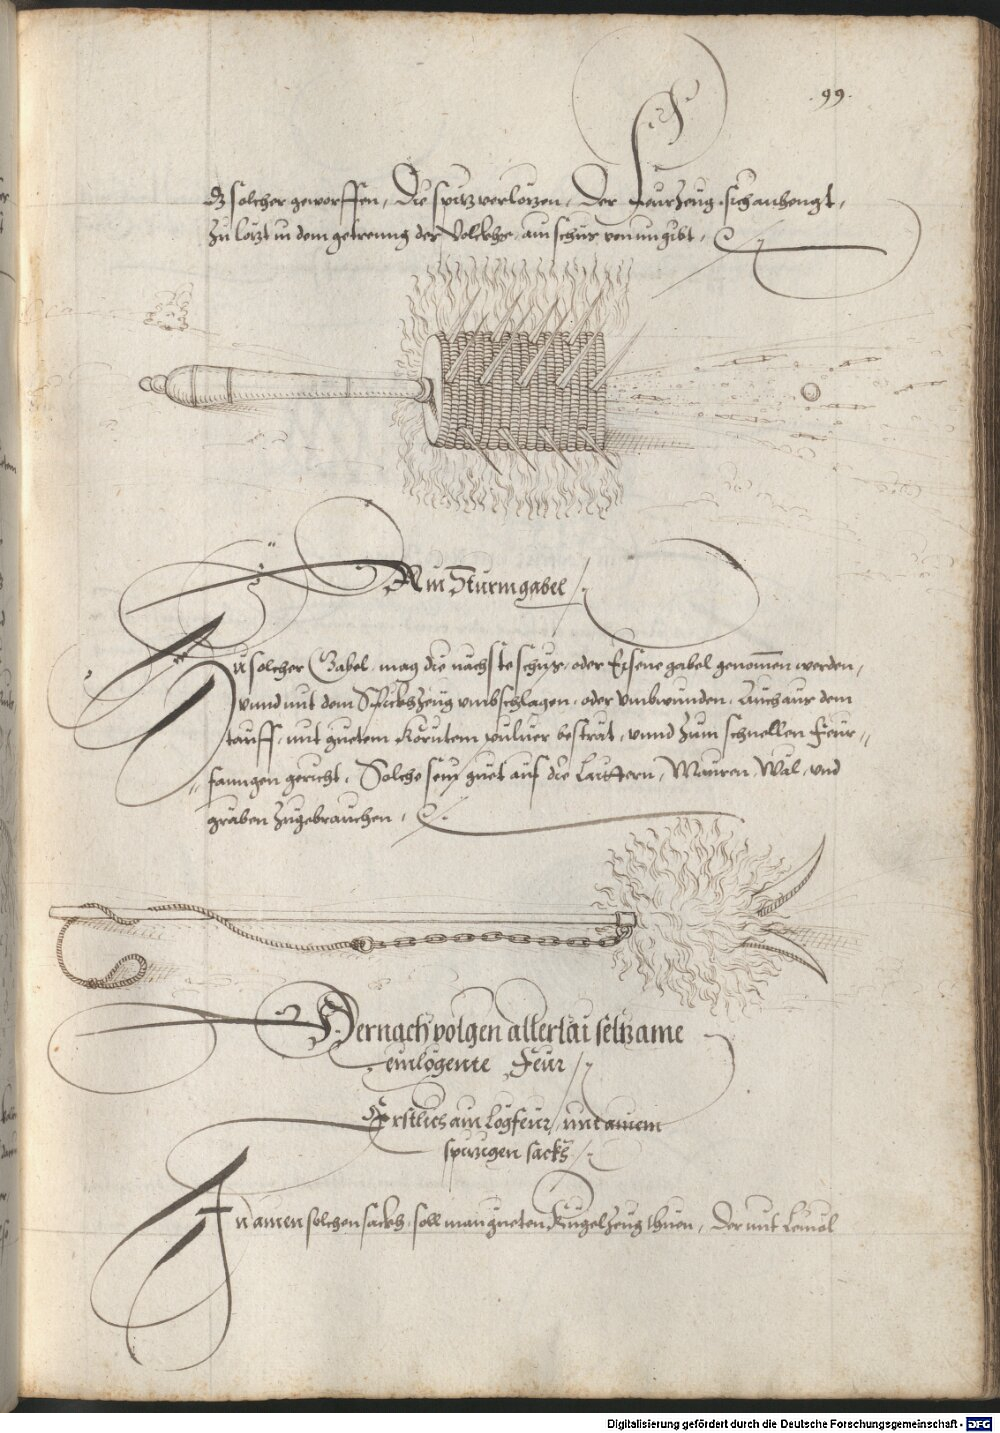 99.
solcher geworffen, die spitz verlorzen, der Feurzeug sich anhengt,
zu lötzt in dem getreung der Volckhe, ain schur von im gibt.
Ain Sturmgabel
Zu solcher Gabel, mag die nächste schur, oder Eisene gabel genomen werden,
vnnd mit dem Stückhzeug vmbschlagen, oder vmbwunden, Auch aus dem
tauff, mit guetem Körntem puluer besträt, vnnd zum schnellen Feur=
fanngen gericht. Solche sein guet auf die Laittern, Mauren, Wäl, vnd
gräben zugebrauchen.
Hernach volgen allerlai seltzame
einlögente Feur
Erstlich ain Lögfeur, mit ainem
spitzigen sackh
In ainen solchen sackh, soll man gueten Kugelzeug thuen, der mit Leinöl
Digitalisierung gefördert durch die Deutsche Forschungsgemeinschaft - DFG